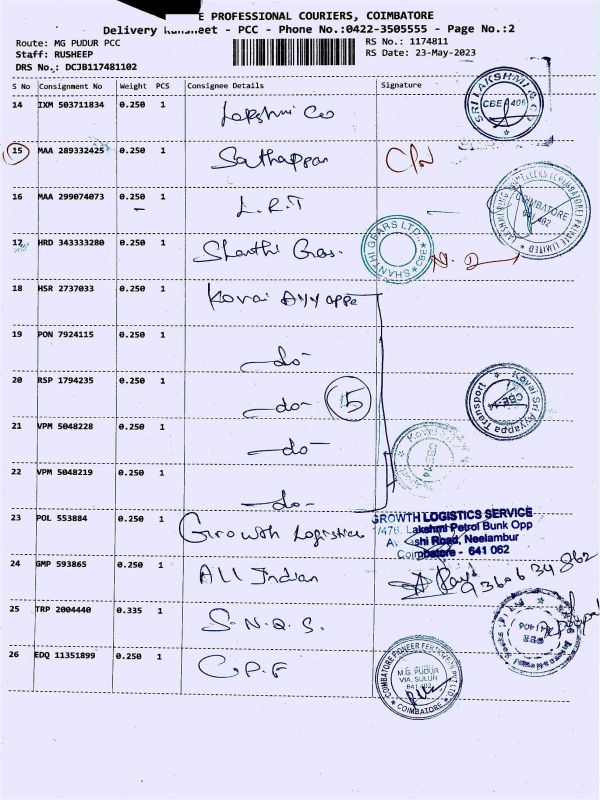 E PROFESSIONAL COURIERS, COIMBATORE
Delivery Runsheet - PCC - Phone No.:0422-3505555 - Page No.:2
Route: MG PUDUR PCC
RS No.: 1174811
Staff: RUSHEEP
RS Date: 23-May-2023
DRS No.: DCJB117481102
S No Consignment No Weight PCS Consignee Details Signature
14 IXM 503711834 0.250 1 Lakshmi Co
SRI LAKSHMI & CO CBE 406
15 MAA 289332425 0.250 1 Sathappan
16 MAA 299074073 0.250 1 L.R.T
COIMBATORE 641 402 PRIVATE LIMITED
17 HRD 343333280 0.250 1 Shanthi Gears.
SHANTHI GEARS LTD., CBE
18 HSR 2737033 0.250 1 Kovai Ayyappa
19 PON 7924115 0.250 1 -do-
20 RSP 1794235 0.250 1 -do-
5
Kovai Sri Ayyappa Transport CBE-14
21 VPM 5048228 0.250 1 -do-
22 VPM 5048219 0.250 1 -do-
23 POL 553884 0.250 1 Growth Logistics
GROWTH LOGISTICS SERVICE
Lakshmi Petrol Bunk Opp
Road, Neelambur
Coimbatore - 641 062
24 GMP 593865 0.250 1 All Indian
93606 34862
25 TRP 2004440 0.335 1 S.N.Q.S.
26 EDQ 11351899 0.250 1 C.P.F
COIMBATORE PIONEER FERTILIZERS PVT LTD
M.G. PUDUR
VIA. SULUR
641 402
COIMBATORE